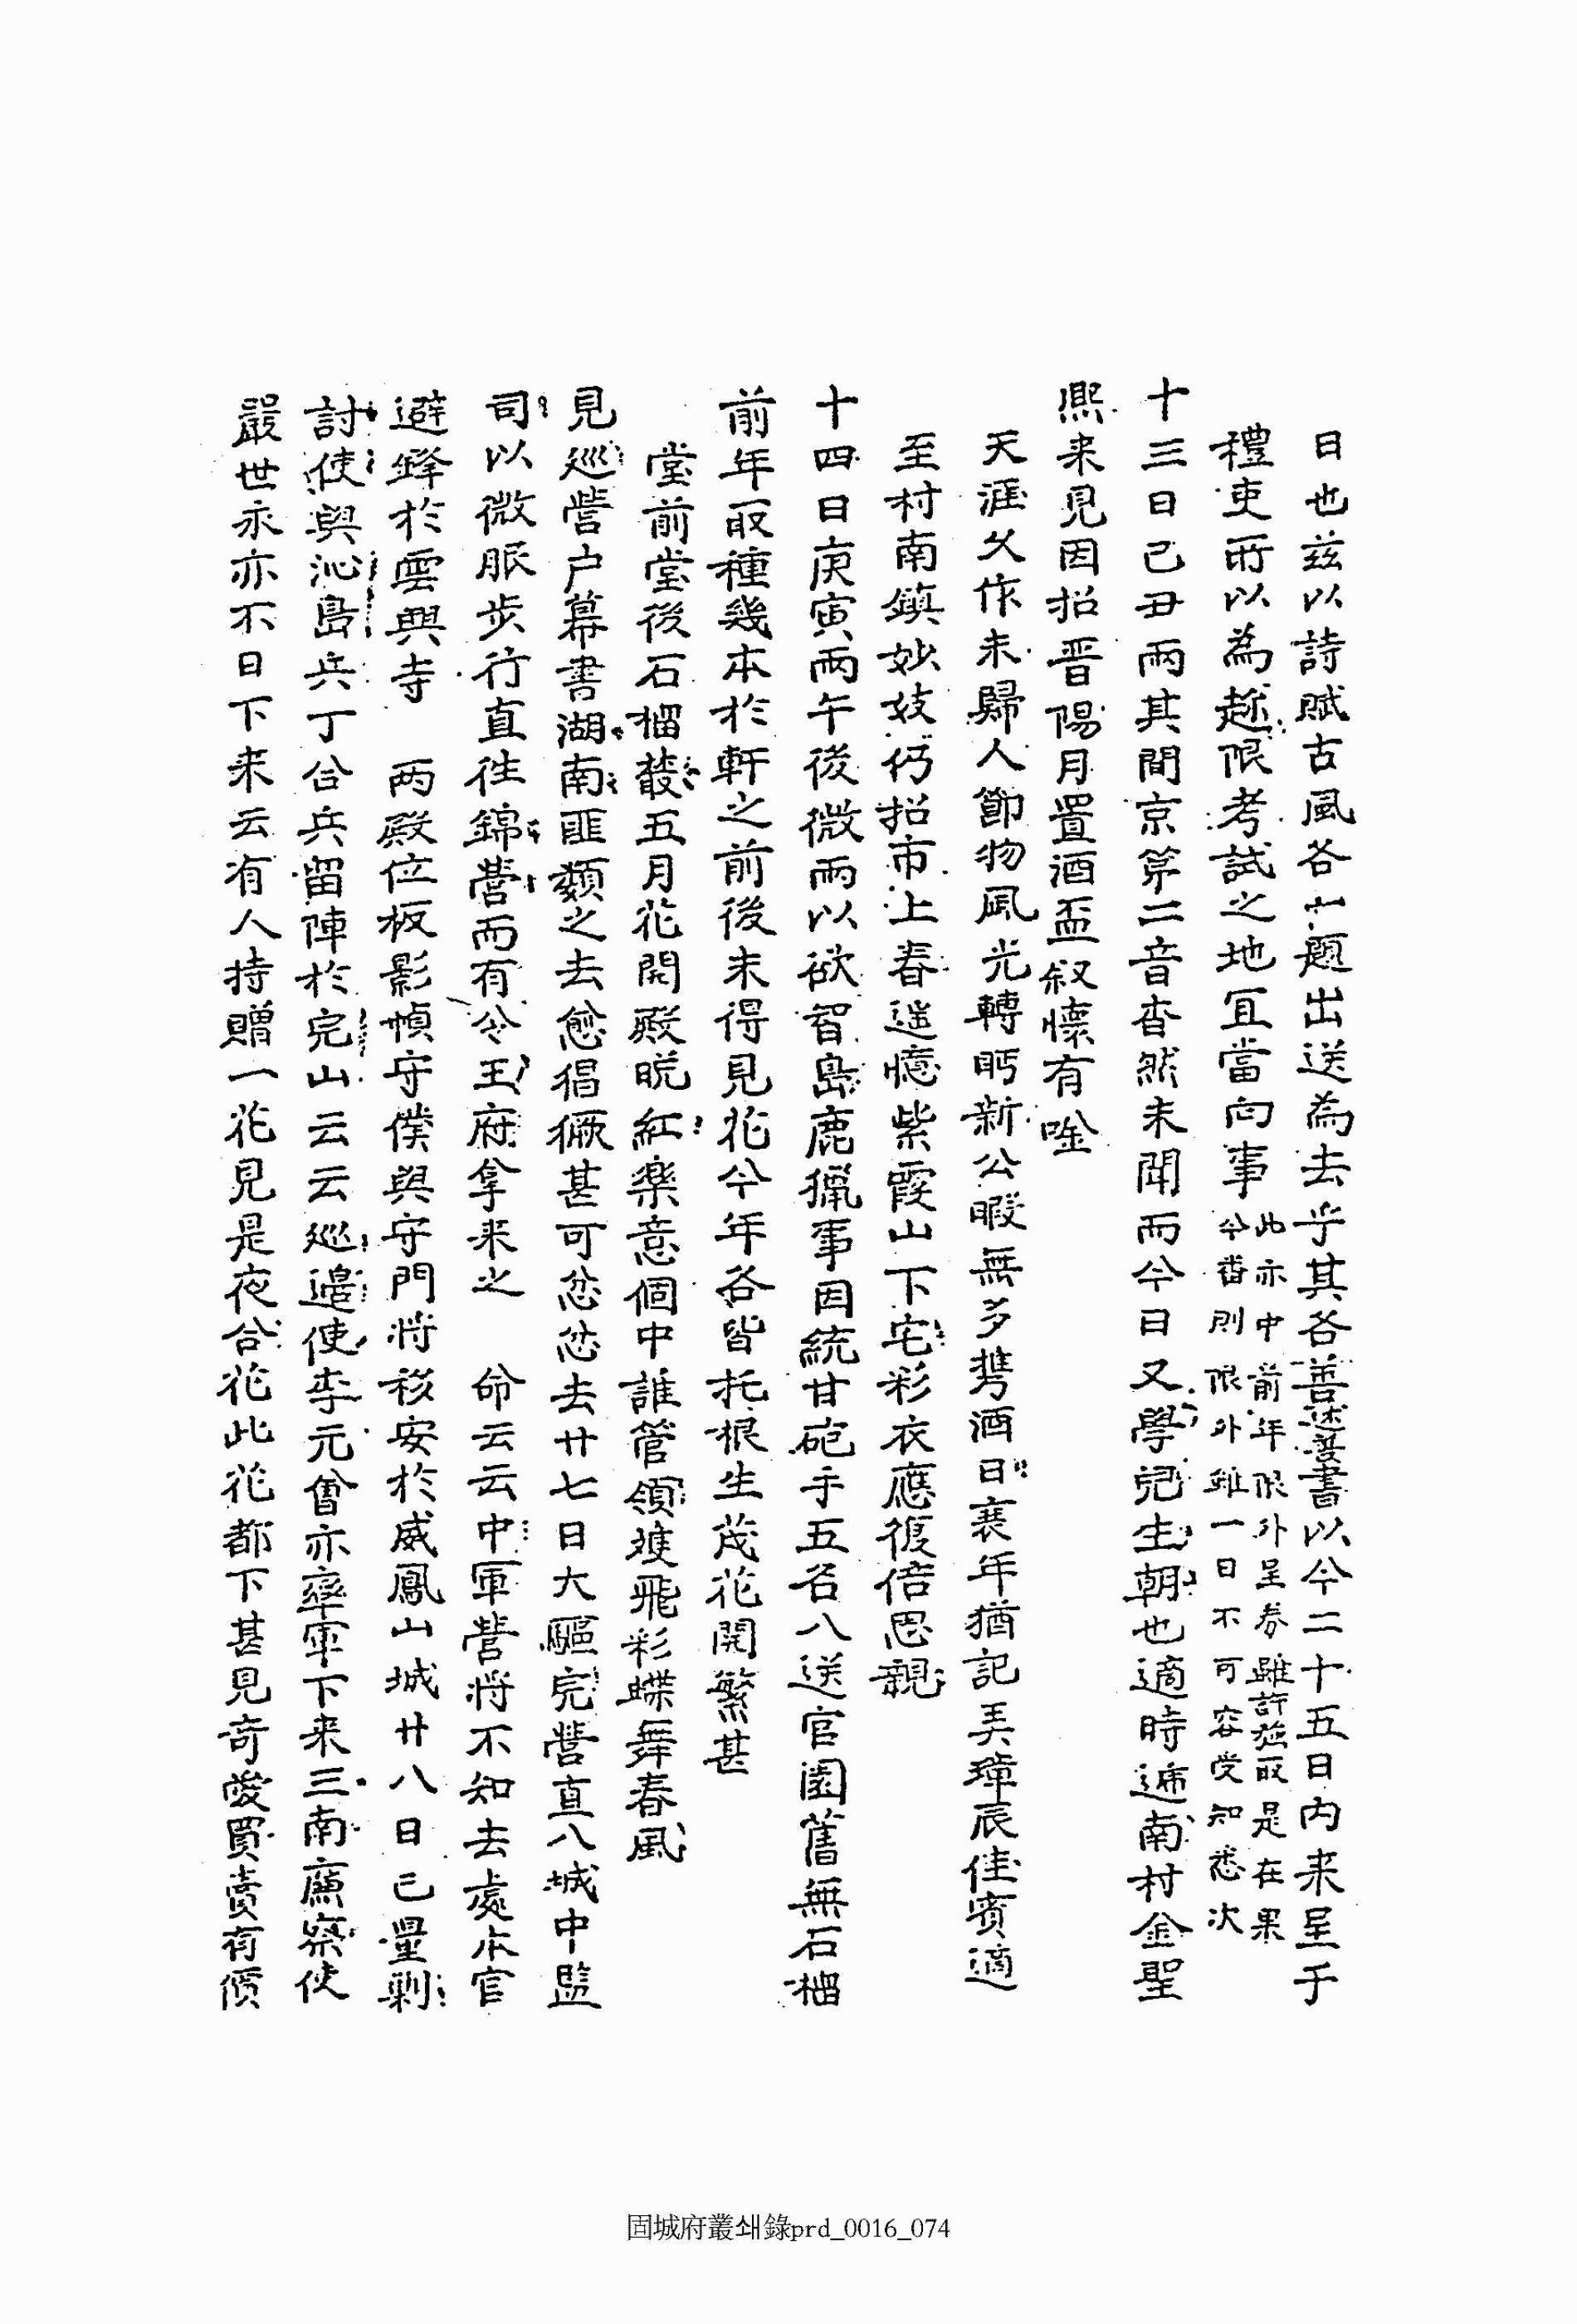 日也兹以詩賦古風各一題出送為去乎其各善述善書以今二十五日内来呈于
禮吏所以為趂限考試之地宜當向事此亦中前年限外呈券雖許施取是在果今番則限外雖一日不可容受知悉次
十三日己丑雨其間京第二音杳然未聞而今日又學兒生朝也適時遞南村金聖
熙来見因招晋陽月置酒盃叙懷有唫
天涯久作未歸人節物風光轉眄新公暇無多携酒日衰年猶記弄璋辰佳賓適
至村南鎮妙妓仍招市上春遥憶紫霞山下宅彩衣應復倍思親
十四日庚寅雨午後微雨以欲智島鹿獵事因統甘砲手五名入送官園舊無石榴
前年取種幾本於軒之前後未得見花今年各皆托根生茂花開繁甚
堂前堂後石榴叢五月花開殿晩紅楽意個中誰管領雙飛彩蝶舞春風
見巡營户幕書湖南匪類之去愈猖獗甚可忿忿去廿七日大驅完營直入城中監
司以微服步行直徃錦營而有令王府拿来之 命云云中軍營将不知去處本官
避鋒於雲興寺 两殿位板影幀守僕與守門将移安於威鳳山城廿八日已暈剿
討使與沁島兵丁合兵留陣於完山云云巡邉使李元會亦率軍下来三南廉察使
嚴世永亦不日下来云有人持贈一花見是夜合花此花都下甚見奇愛買賣有價